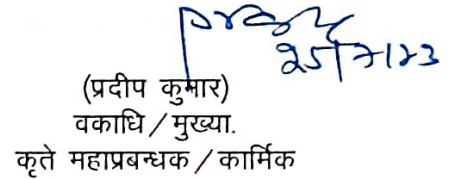 25/7/23
(प्रदीप कुमार)
वकाधि / मुख्या.
कृते महाप्रबन्धक / कार्मिक